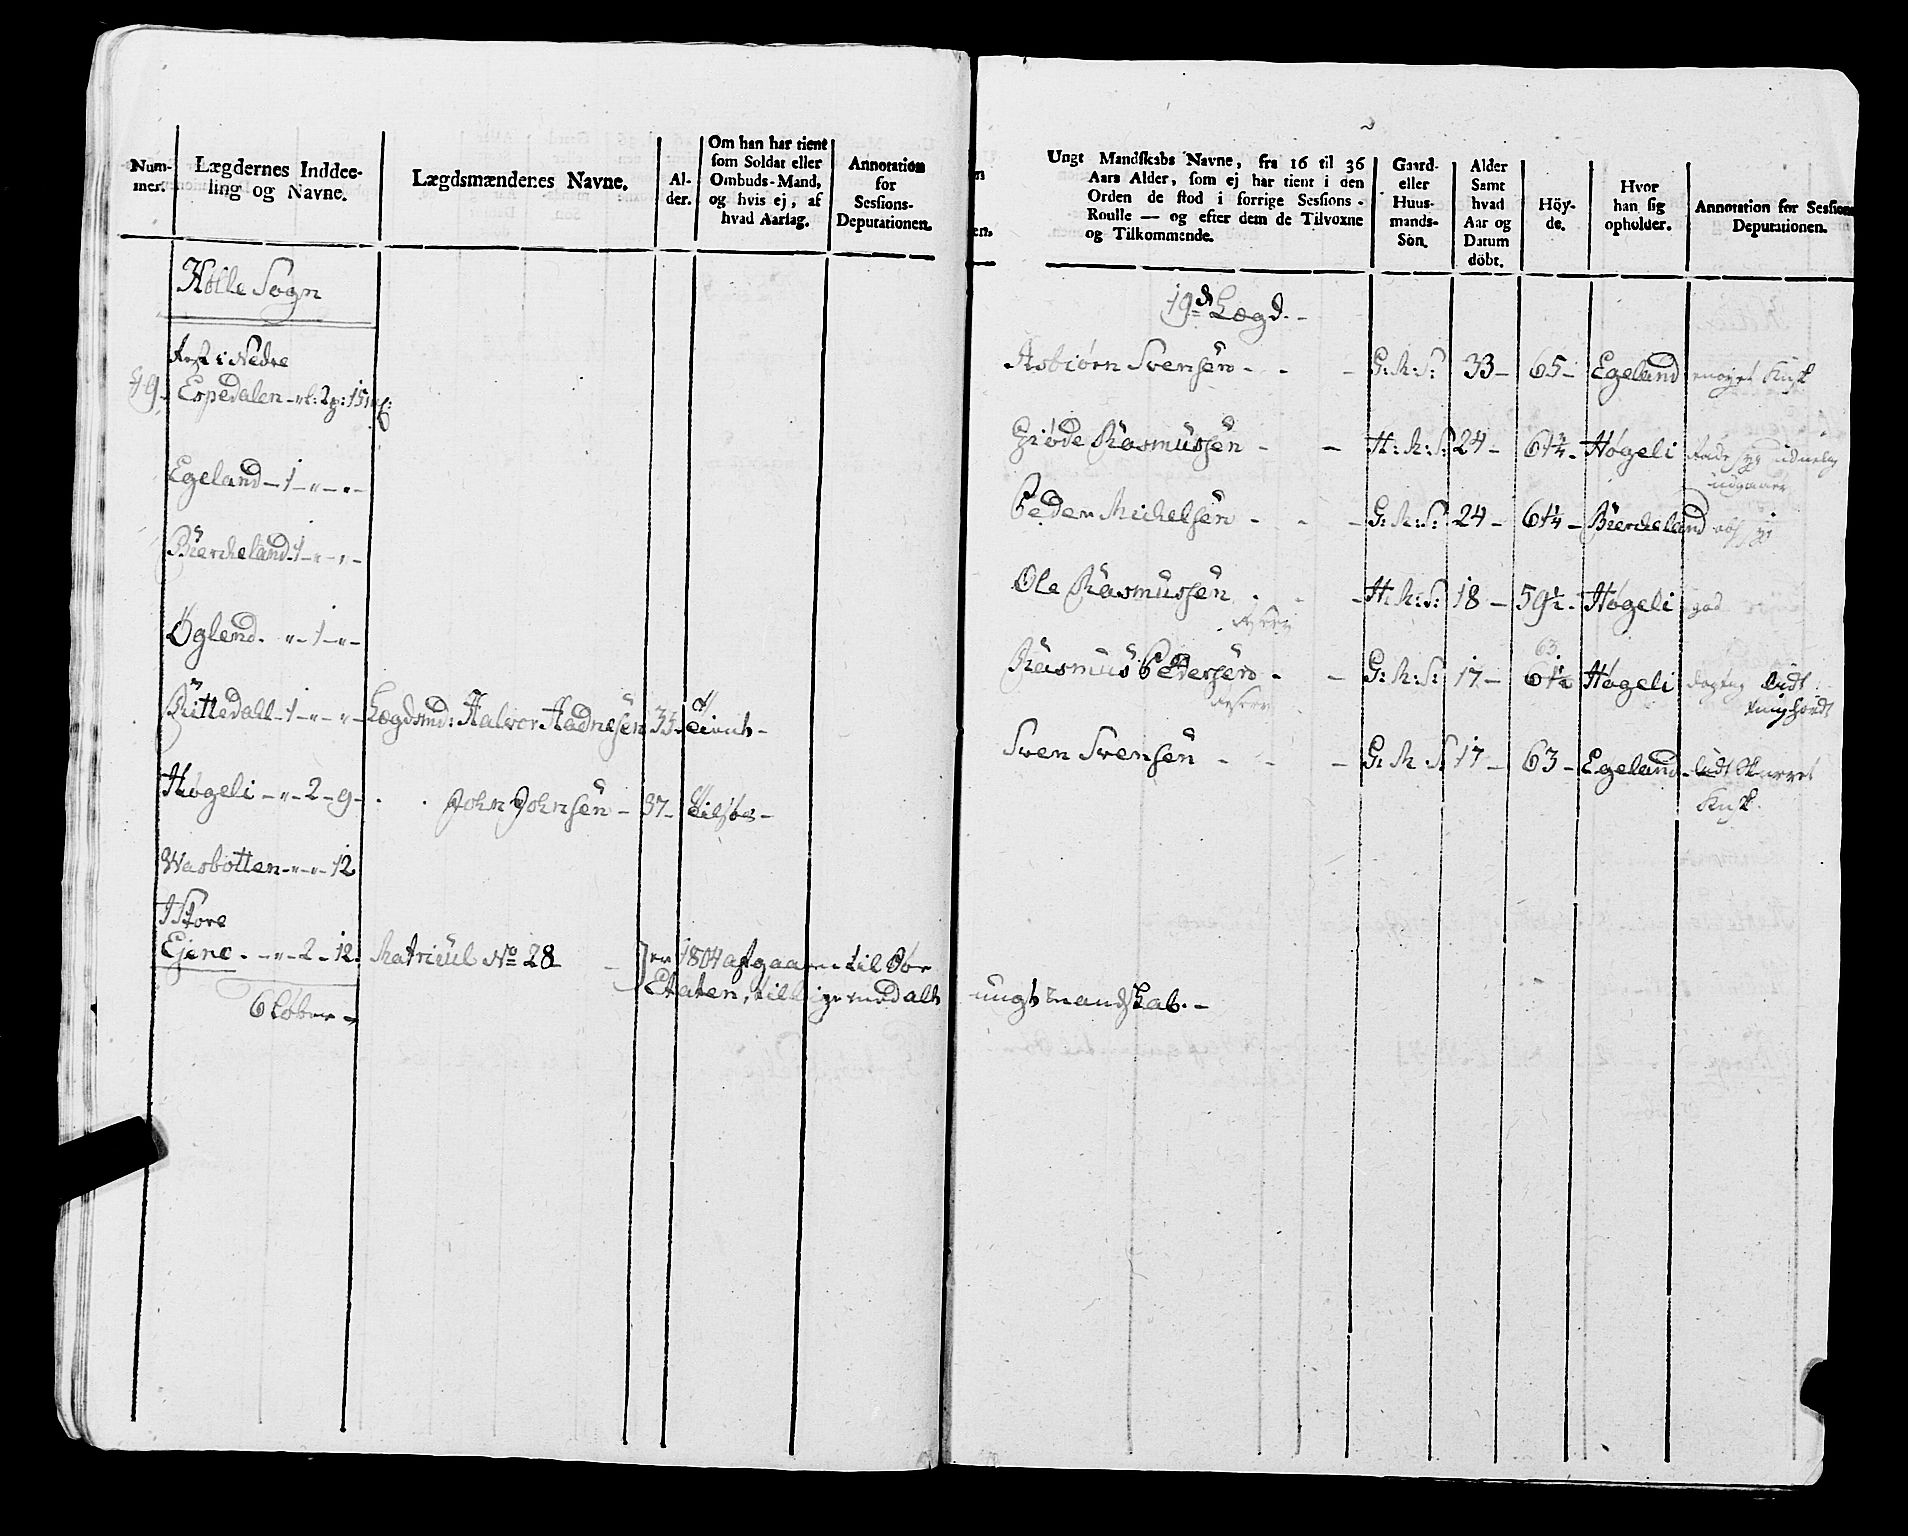 Num-
mer.
Lægdernes Inddee-
ling og Navne.
Lægdsmændenes Navne.
Al-
der.
Om han har tient
som Soldat eller
Ombuds-Mand,
og hvis ej, af
hvad Aarsag.
Annotation
for
Sessions-
Deputationen.
Holle Sogn
19. Espedalen
Egeland - 1 - " - " -
Bierckeland - 1 - " - " -
Øglend. " - 1 - " -
Rettedall - 1 - " - " - Lægdsmd: Halvor Hadnesen 33
Høgeli - " - 2 - 9 - John Johnsen - 37 -
Wasbotten - " - " - 12
I Store
Ejene. - " - 2 - 12. Matricul No 28 } er 1804 afgaaen til Søe
Etaten, tillige med alt ungt mandskab. -
6 Løber -
Ungt Mandskabs Navne, fra 16 til 36
Aars Alder, som ej har tient i den
Orden de stod i forrige Sessions-
Roulle — og efter dem de Tilvoxne
og Tilkommende.
Gaard-
eller
Huus-
mands-
Søn.
Alder
Samt
hvad
Aar og
Datum
döbt.
Höy-
de.
Hvor
han sig
opholder.
Annotation for Sessions
Deputationen.
19de Lægd. -
Asbiørn Svensen - - - G: M: S: 33 - 65 - Egeland
Giøde Rasmussen - - H: M: S: 24 - Høgeli
Peder Michelsen - - - G: M: S: 24 - 61¼ - Bierckeland
Ole Rasmussen - - - H: M: S: 18 - 59½ - Høgeli god
63
Rasmus Pedersen - - G: M: S: 17 - 61½ Høgeli
Sven Svensen - - - G: M: S 17 - 63 - Egeland